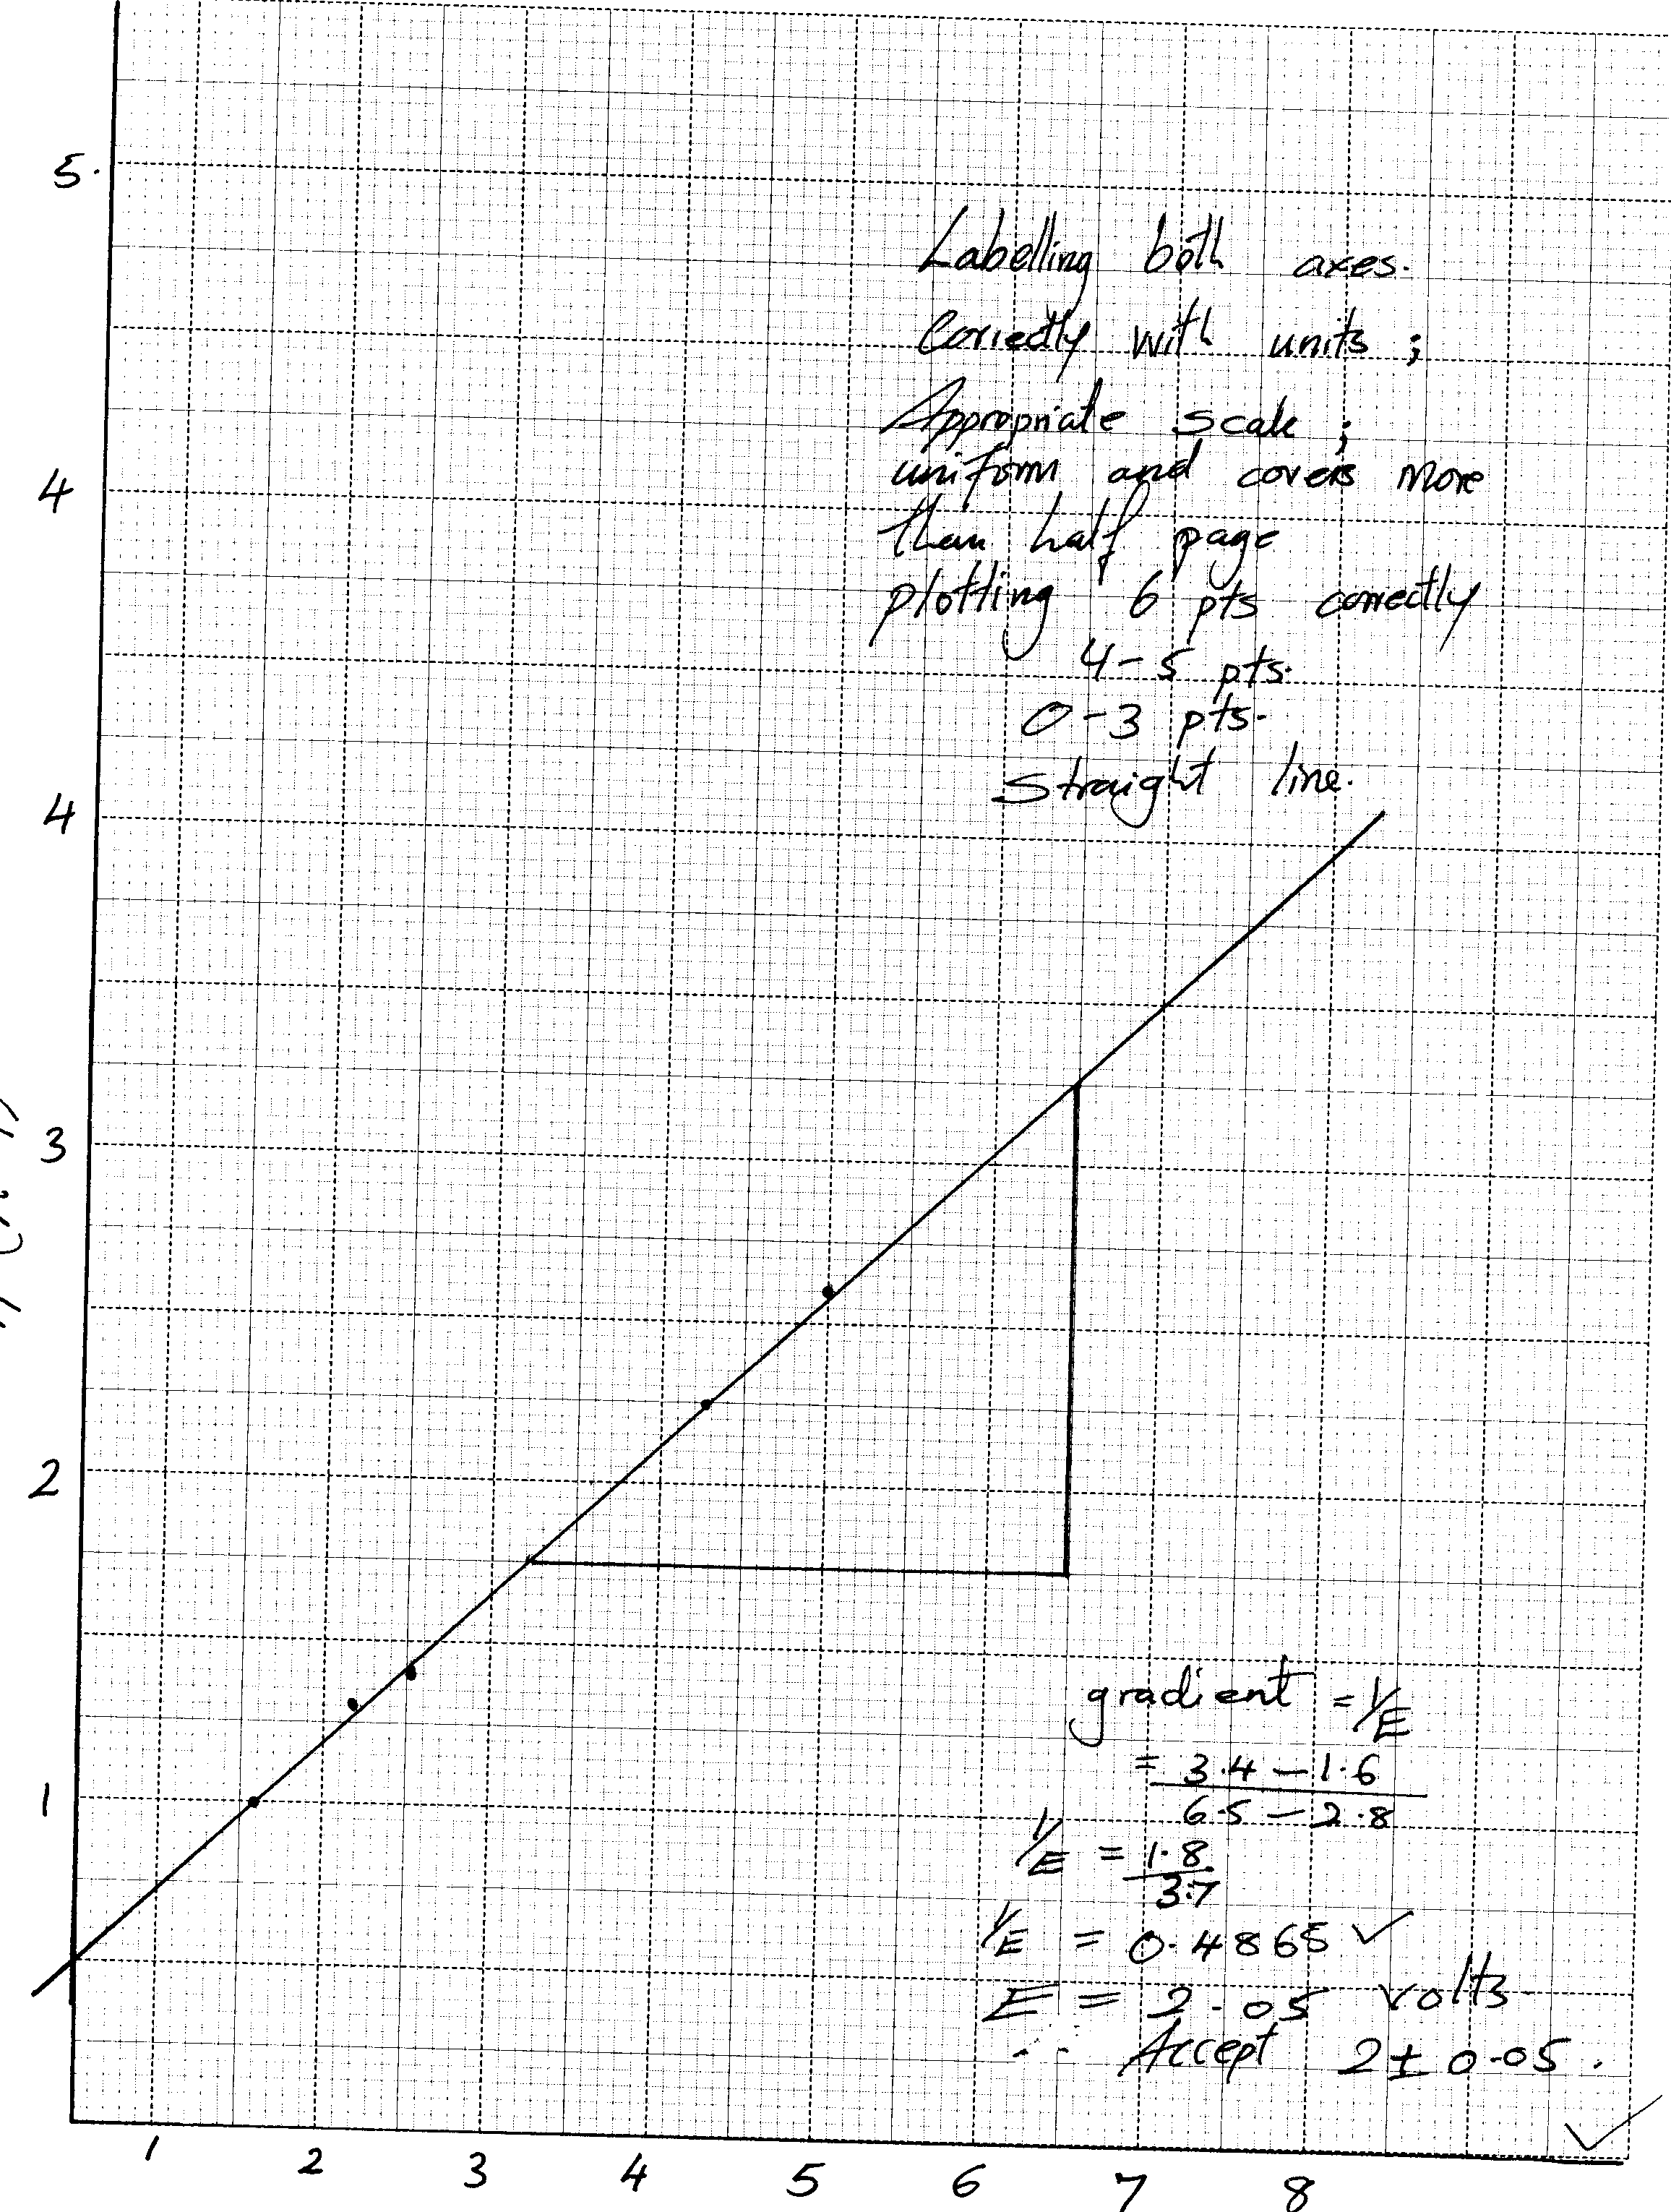 5.
Labelling both axes.
Correctly with units ;
Appropriate scale ;
4
uniform and covers more
than half page
plotting 6 pts correctly
4-5 pts.
0-3 pts.
straight line.
4
3
2
gradient = 1/E
= 3.4 - 1.6
6.5 - 2.8
1
1/E = 1.8
3.7
1/E = 0.4865 ✓
E = 2.05 volts
Accept 2 ± 0.05 .
✓
1 2 3 4 5 6 7 8